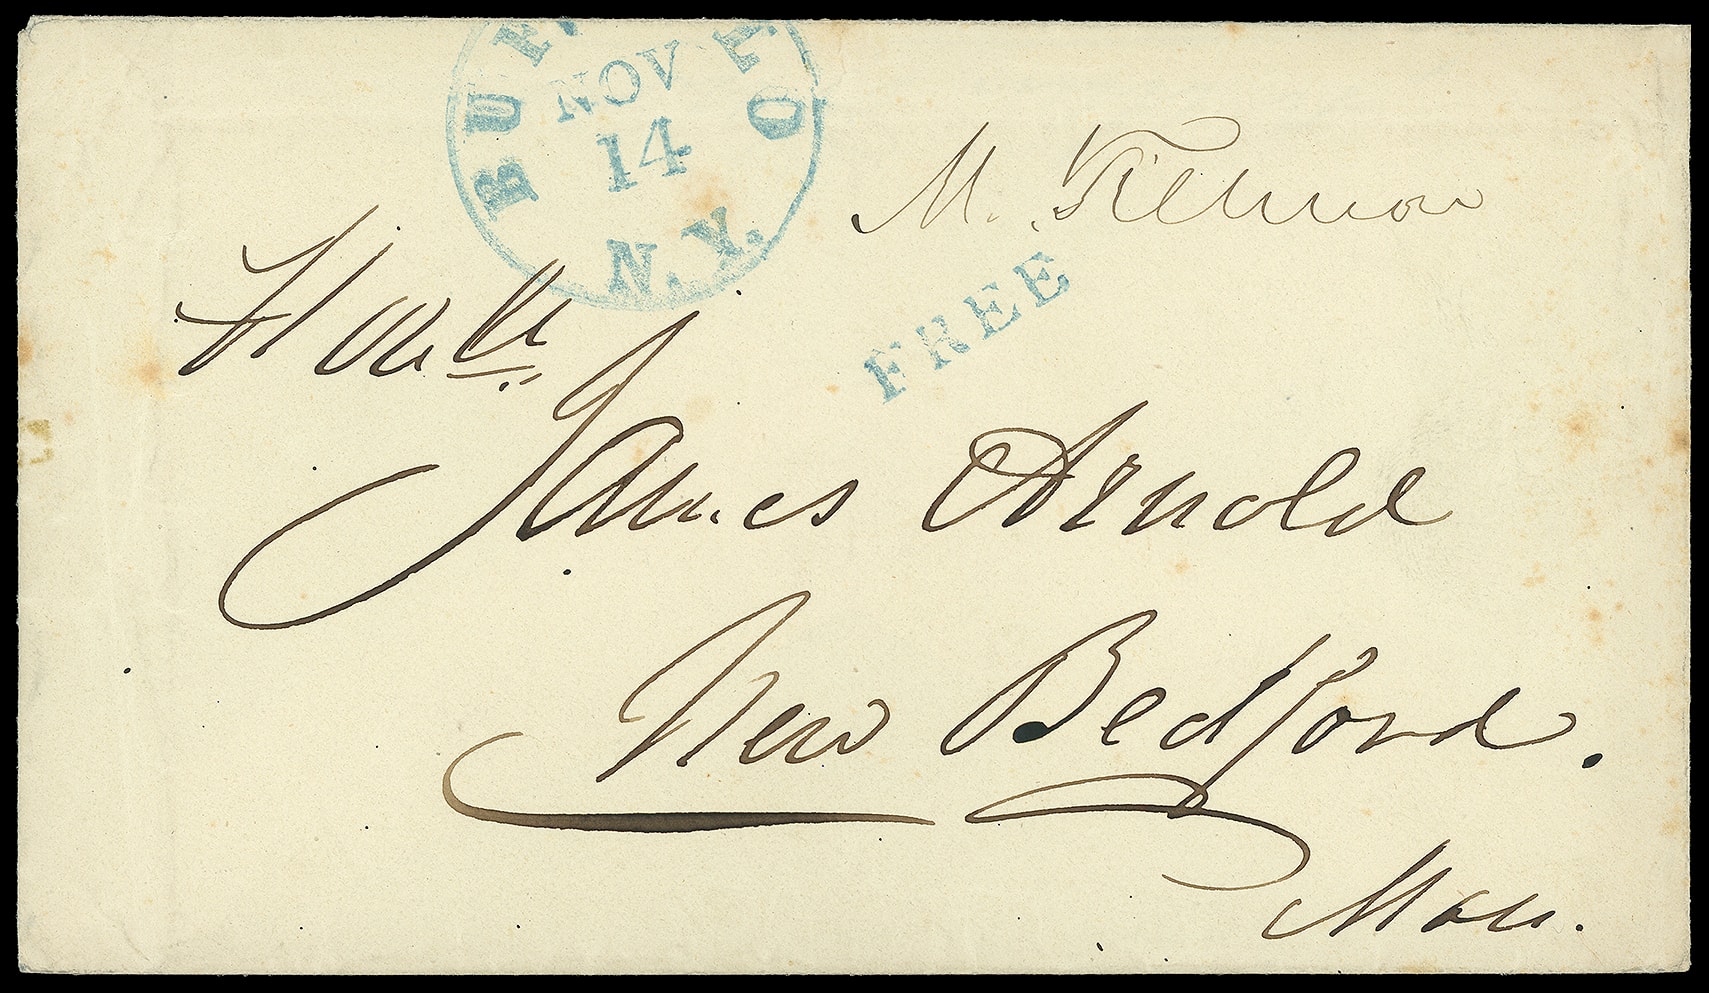 BUFFALO
NOV
14
N.Y.
M. Fillmore
FREE
Hon
James Arnold
New Bedford.
Mass.